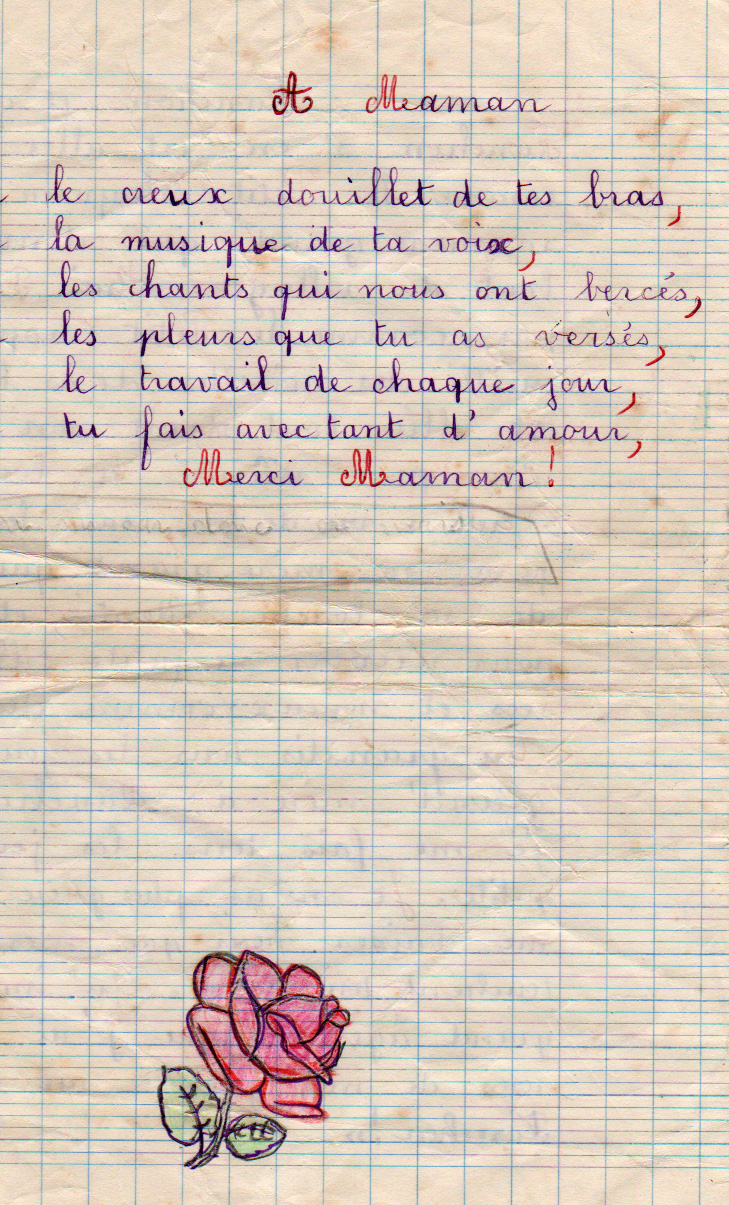 A Maman
le creux douillet de tes bras,
la musique de ta voix,
les chants qui nous ont bercés,
les pleurs que tu as versés,
le travail de chaque jour,
tu fais avec tant d'amour,
Merci Maman !